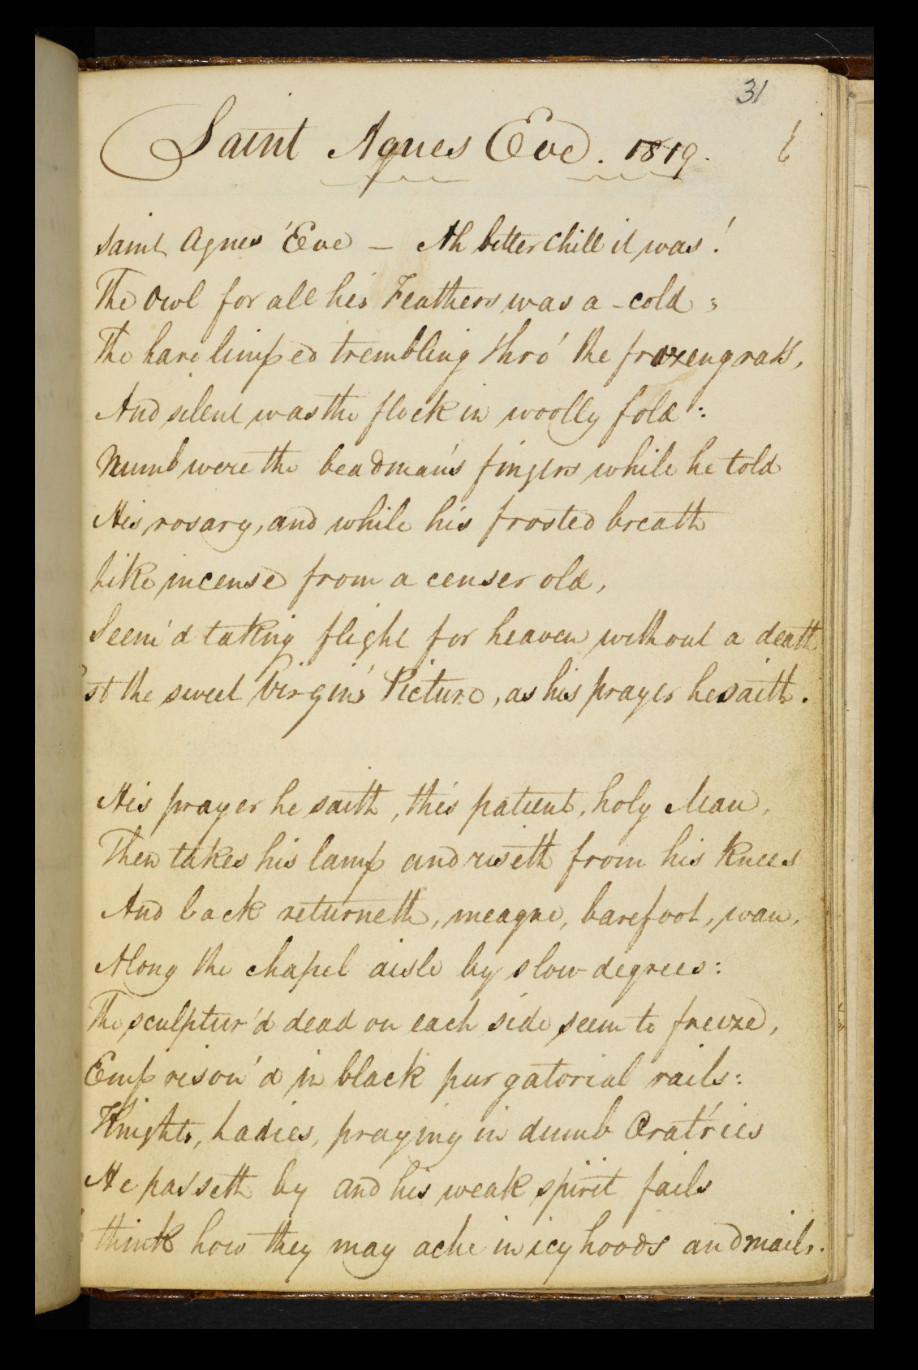 31
Saint Agnes Eve. 1819.
Saint Agnes' Eve — Ah bitter chill it was!
The Owl for all his Feathers was a-cold;
The hare limped trembling thro' the frozen grass,
And silent was the flock in woolly fold:
Numb were the beadman's fingers while he told
His rosary, and while his frosted breath
Like incense from a censer old,
Seem'd taking flight for heaven without a death
st the sweet Virgin's Picture, as his prayer he saith.
His prayer he saith, this patient, holy Man,
Then takes his lamp and riseth from his knees
And back returneth, meagre, barefoot, wan,
Along the chapel aisle by slow degrees:
The sculptur'd dead on each side seem to freeze,
Emprison'd in black purgatorial rails:
Knights, Ladies, praying in dumb Orat'ries
He passeth by and his weak spirit fails
think how they may ache in icy hoods and mails.